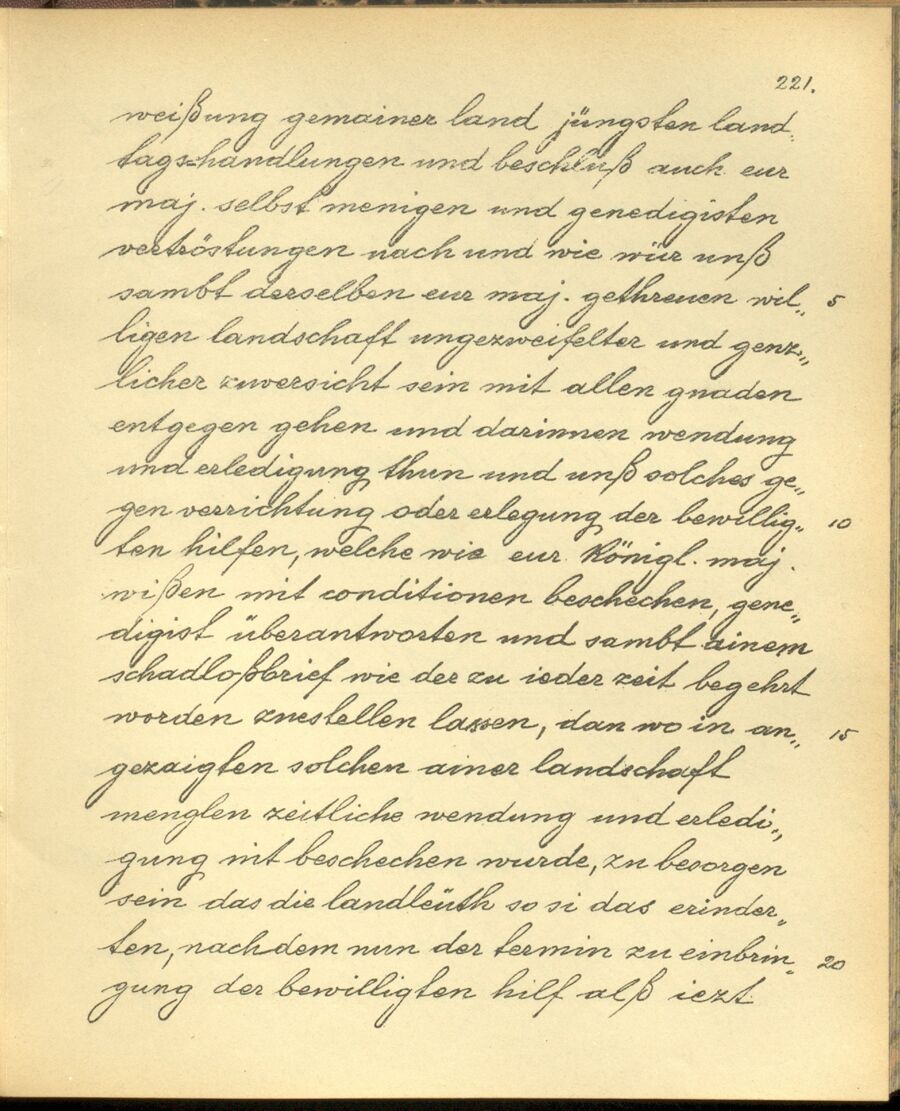 221.
weißung gemainer land jüngsten land„
tags-handlungen und beschluß auch eur
maj. selbst menigen und genedigisten
vertröstungen nach und wie wür unß
sambt derselben eur maj. gethreuen wil„ 5
ligen landschaft ungezweifelter und genz„
licher zuversicht sein mit allen gnaden
entgegen gehen und darinnen wendung
und erledigung thun und unß solches ge„
gen verrichtung oder erlegung der bewillig„ 10
ten hilfen, welche wie eur königl. maj.
wißen mit conditionen beschechen, gene„
digist überantworten und sambt ainem
schadloßbrief wie der zu ieder zeit begehrt
worden zuestellen lassen, dan wo in an„ 15
gezaigten solchen ainer landschaft
menglen zeitliche wendung und erledi„
gung nit beschechen wurde, zu besorgen
sein das die landleüth so si das erinder„
ten, nachdem nun der termin zu einbrin„ 20
gung der bewilligten hilf alß iezt